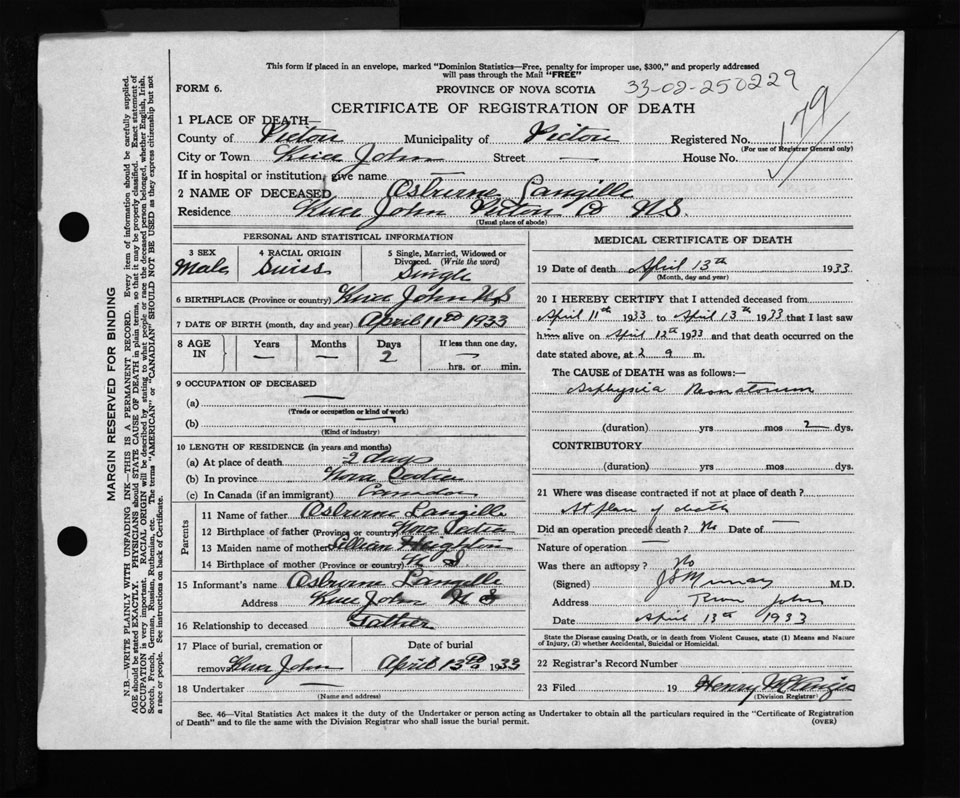 This form if placed in an envelope, marked "Dominion Statistics—Free, penalty for improper use, $300," and properly addressed
will pass through the Mail "FREE"
FORM 6.
PROVINCE OF NOVA SCOTIA
33-02-250229
CERTIFICATE OF REGISTRATION OF DEATH
179
1 PLACE OF DEATH—
County of Pictou Municipality of Pictou Registered No.
(For use of Registrar General only)
City or Town River John Street — House No.
If in hospital or institution, give name —
2 NAME OF DECEASED Osburne Langille
Residence River John Pictou Co N.S.
(Usual place of abode)
PERSONAL AND STATISTICAL INFORMATION
3 SEX 4 RACIAL ORIGIN 5 Single, Married, Widowed or Divorced. (Write the word)
Male Swiss Single
6 BIRTHPLACE (Province or country) River John N.S
7 DATE OF BIRTH (month, day and year) April 11th 1933
8 AGE IN Years Months Days If less than one day,
— — 2 — hrs. or min.
9 OCCUPATION OF DECEASED
(a) —
(Trade or occupation or kind of work)
(b) —
(Kind of industry)
10 LENGTH OF RESIDENCE (in years and months)
(a) At place of death 2 days
(b) In province Nova Scotia
(c) In Canada (if an immigrant)
Parents
11 Name of father Osburne Langille
12 Birthplace of father (Province or country) Nova Scotia
13 Maiden name of mother Lillian
14 Birthplace of mother (Province or country) N S
15 Informant's name Osburne Langille
Address River John N S
16 Relationship to deceased Father
17 Place of burial, cremation or Date of burial
removal River John April 13th 1933
18 Undertaker —
(Name and address)
MEDICAL CERTIFICATE OF DEATH
19 Date of death April 13th 1933
(Month, day and year)
20 I HEREBY CERTIFY that I attended deceased from
April 11th 1933 to April 13th 1933 that I last saw
him alive on April 12th 1933 and that death occurred on the
date stated above, at 2 a m.
The CAUSE of DEATH was as follows:—
Asphyxia Neonatorum
(duration) yrs mos 2 dys.
CONTRIBUTORY
(duration) yrs mos dys.
21 Where was disease contracted if not at place of death?
At place of death
Did an operation precede death? No Date of —
Nature of operation —
Was there an autopsy? No
(Signed) J S Murray M.D.
Address River John
Date April 13th 1933
State the Disease causing Death, or in death from Violent Causes, state (1) Means and Nature
of Injury, (2) whether Accidental, Suicidal or Homicidal.
22 Registrar's Record Number
23 Filed 19 Henry
(Division Registrar)
Sec. 46—Vital Statistics Act makes it the duty of the Undertaker or person acting as Undertaker to obtain all the particulars required in the "Certificate of Registration
of Death" and to file the same with the Division Registrar who shall issue the burial permit.
(OVER)
MARGIN RESERVED FOR BINDING
N.B.—WRITE PLAINLY WITH UNFADING INK—THIS IS A PERMANENT RECORD. Every item of information should be carefully supplied.
AGE should be stated EXACTLY. PHYSICIANS should STATE CAUSE OF DEATH in plain terms, so that it may be properly classified. Exact statement of
OCCUPATION is very important. RACIAL ORIGIN will be described by stating to what people or race the deceased person belonged, whether English, Irish,
Scotch, French, German, Russian, Ruthenian, etc. The terms "AMERICAN" or "CANADIAN" SHOULD NOT BE USED as they express citizenship but not
a race or people. See instructions on back of Certificate.